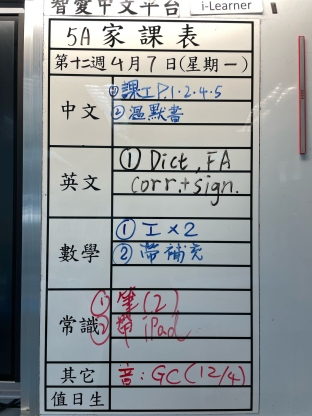 智愛中文平台
i-Learner
5A 家課表
第十二週 4月7日(星期一)
中文
① 課工 P.1·2·4·5
② 温默書
英文
① Dict, FA
corr.+sign.
數學
① 工×2
② 帶補充
常識
① 筆(2)
② 帶 iPad
其它
音:GC(12/4)
值日生